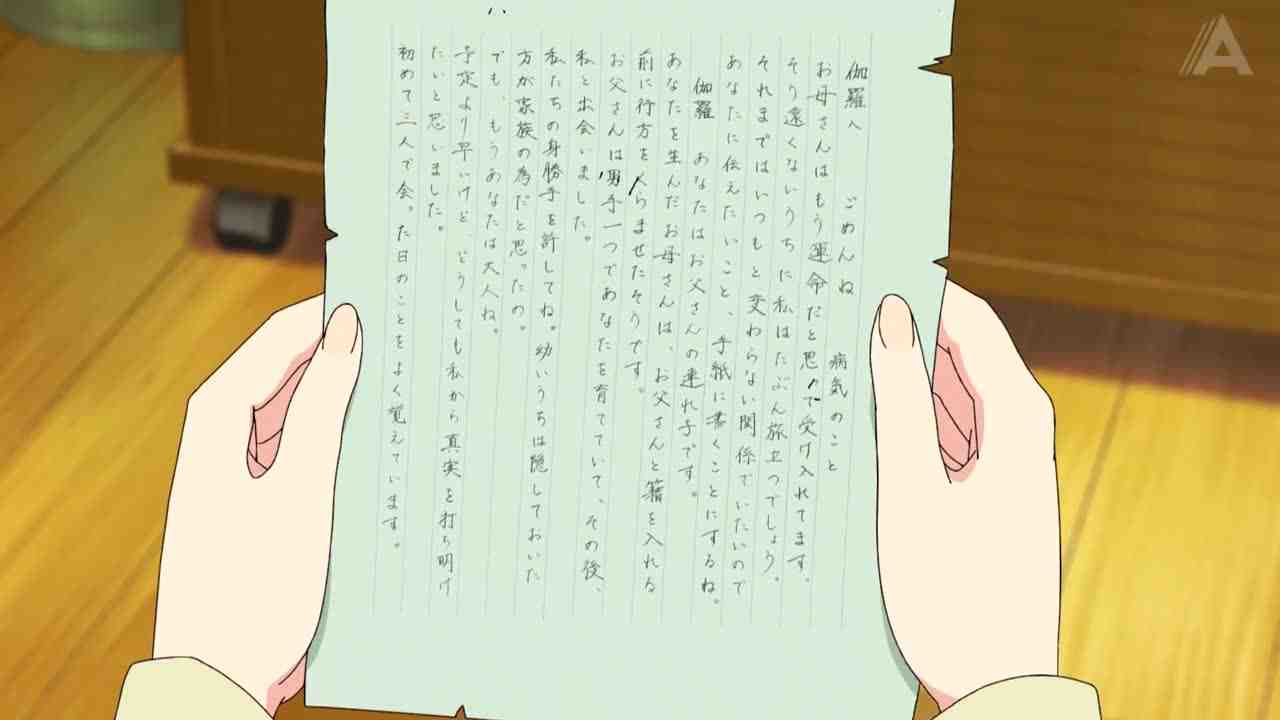 伽羅へ　ごめんね　病気のこと
お母さんはもう運命だと思って受け入れてます。
そう遠くないうちに私はたぶん旅立つでしょう。
それまではいつもと変わらない関係でいたいので
あなたに伝えたいこと、手紙に書くことにするね。
伽羅　あなたはお父さんの連れ子です。
あなたを生んだお母さんは、お父さんと籍を入れる
前に行方をくらませたそうです。
お父さんは男手一つであなたを育てていて、その後、
私と出会いました。
私たちの身勝手を許してね。幼いうちは隠しておいた
方が家族の為だと思ったの。
でも、もうあなたは大人ね。
予定より早いけど、どうしても私から真実を打ち明け
たいと思いました。
初めて三人で会った日のことをよく覚えています。
A